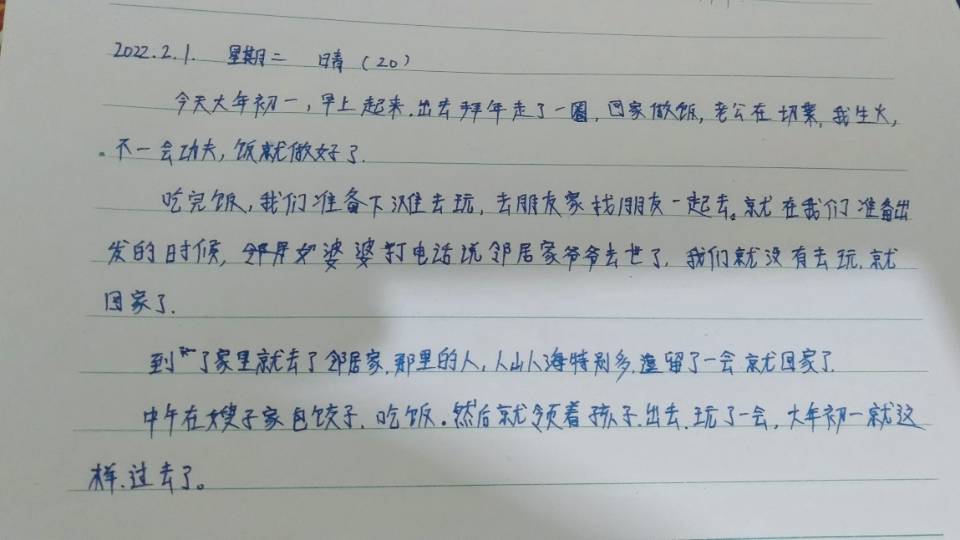 2022.2.1. 星期二 晴（20）
今天大年初一，早上起来.出去拜年走了一圈,回家做饭,老公在切菜,我生火,
不一会功夫,饭就做好了.
吃完饭,我们准备下滩去玩,去朋友家找朋友一起去。就在我们准备出
发的时候,婆婆打电话说邻居家爷爷去世了,我们就没有去玩,就
回家了.
到了家里就去了邻居家,那里的人,人山人海特别多,逗留了一会就回家了.
中午在嫂子家包饺子,吃饭。然后就领着孩子.出去.玩了一会,大年初一就这
样.过去了。